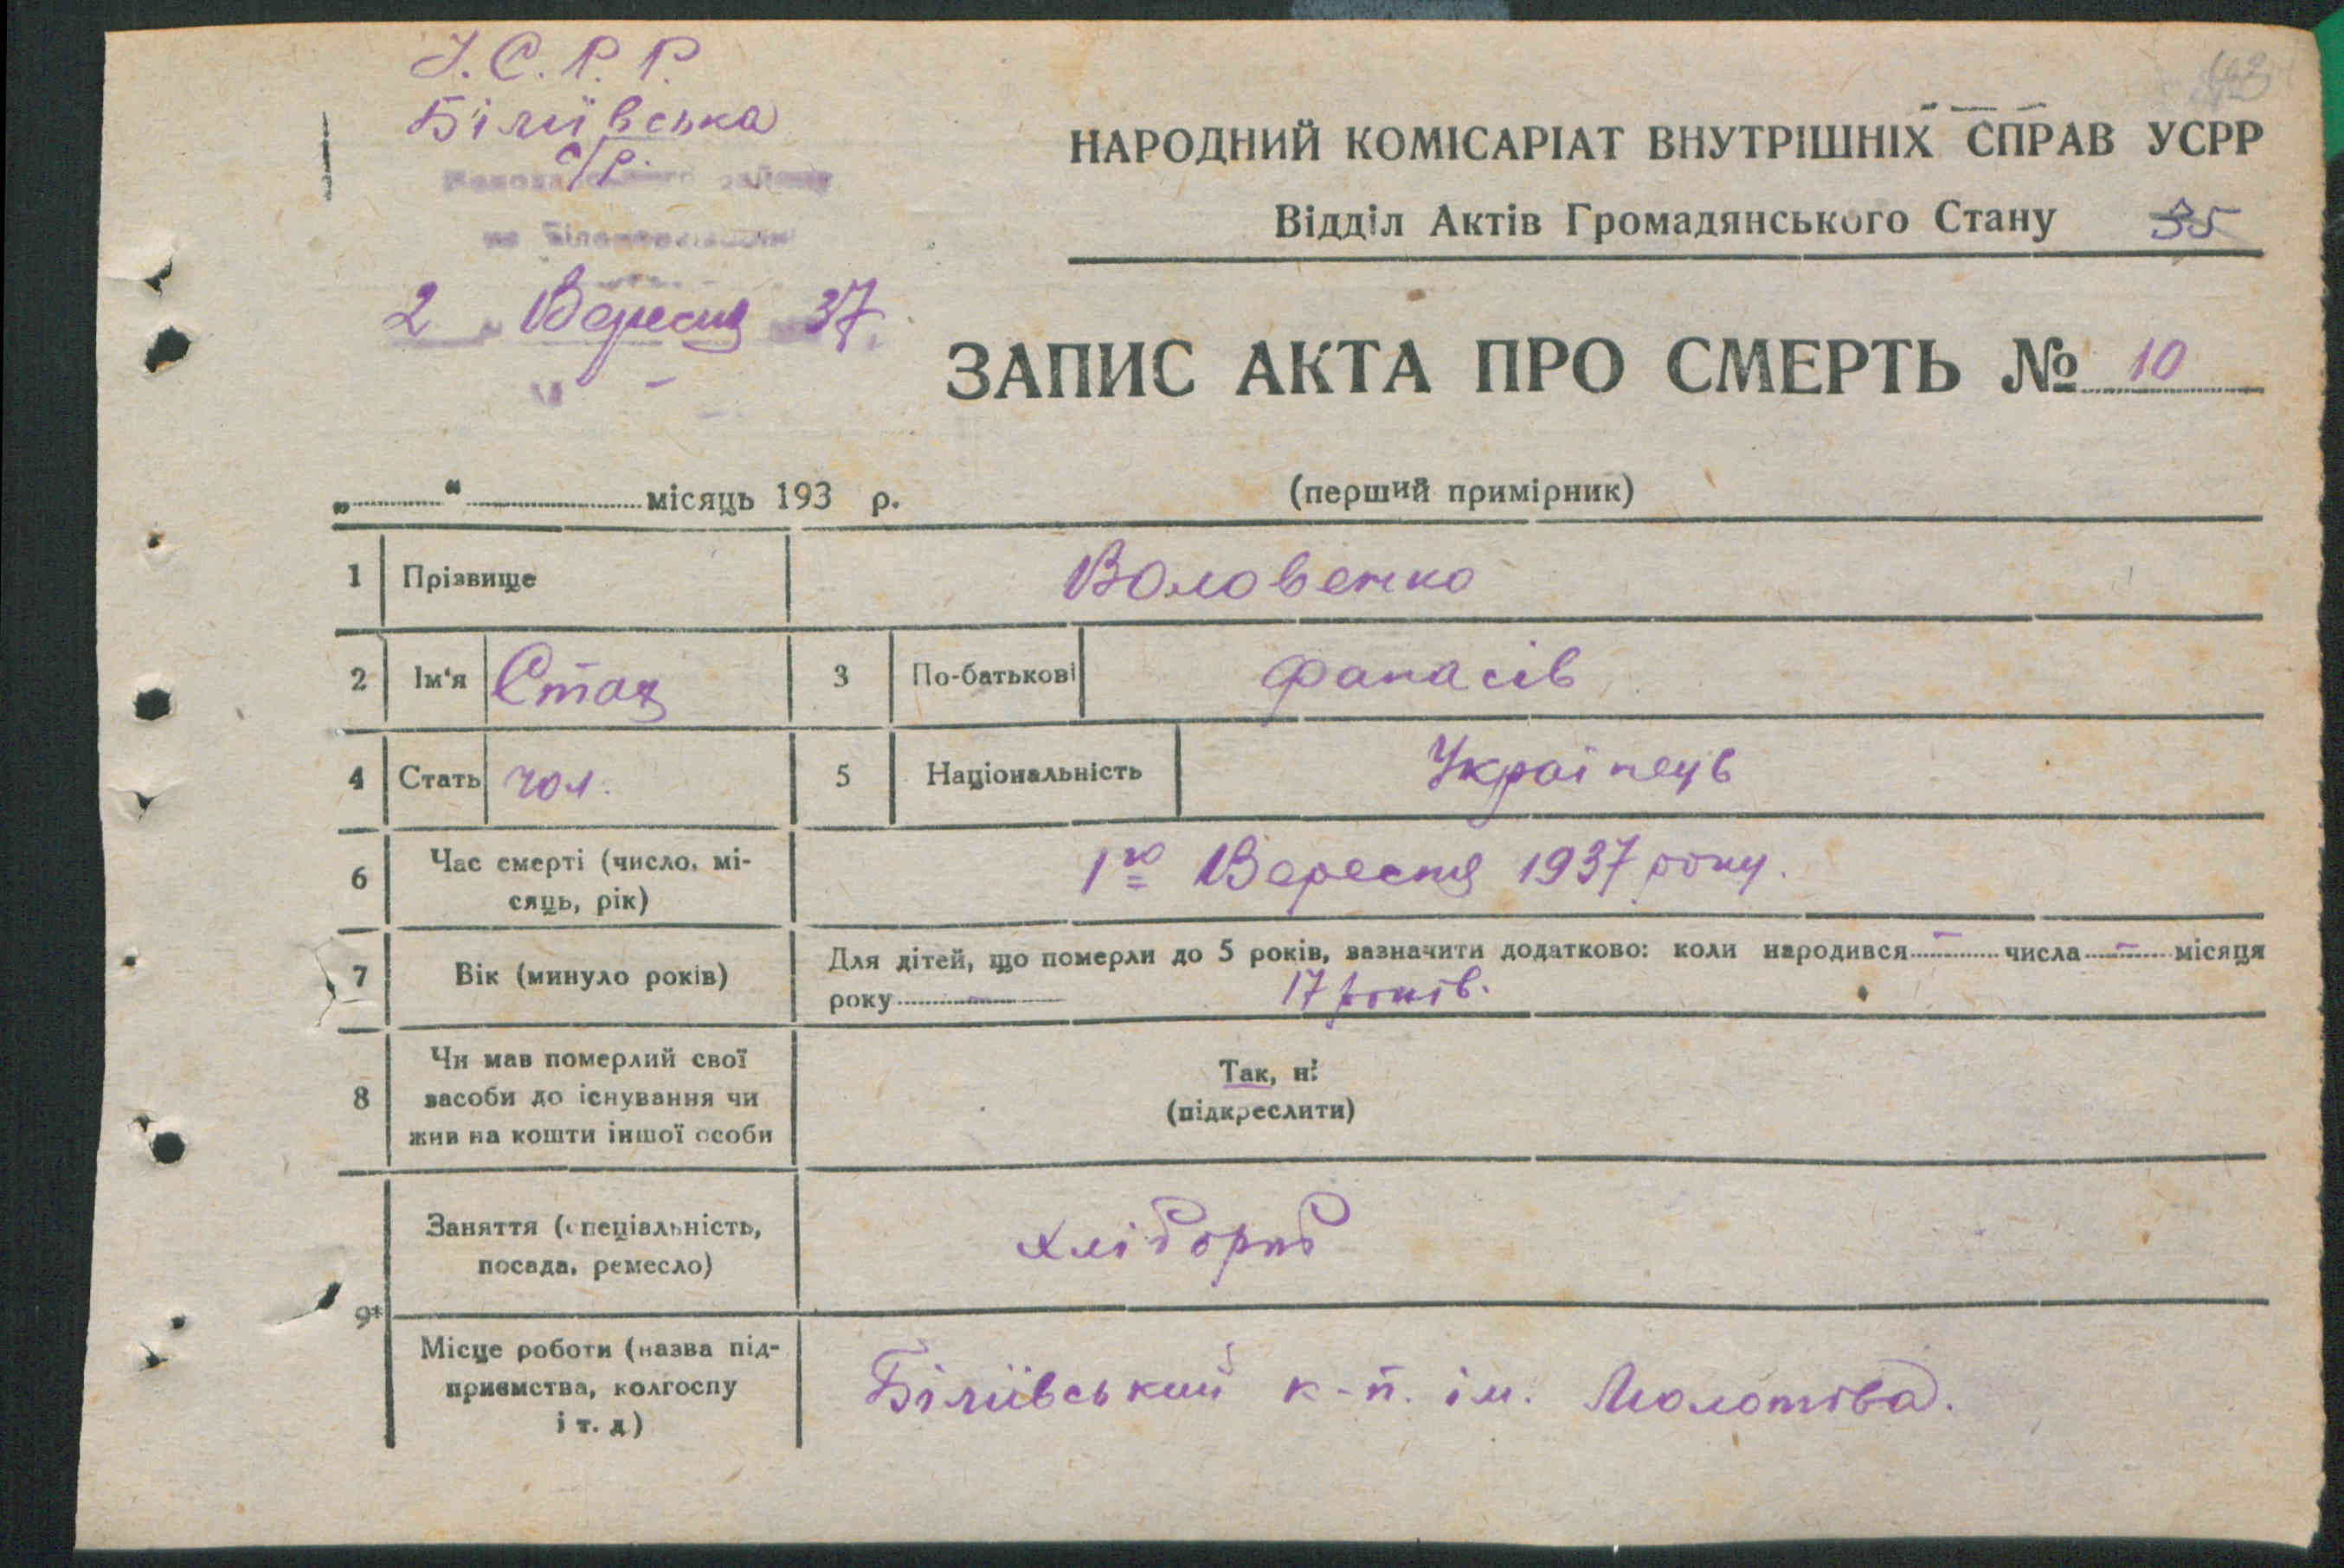 У. С. Р. Р.
Біліївська
с/р.
2 Вересня 37
НАРОДНИЙ КОМІСАРІАТ ВНУТРІШНІХ СПРАВ УСРР
Відділ Актів Громадянського Стану 35
ЗАПИС АКТА ПРО СМЕРТЬ № 10
„ “ місяць 193 р.
(перший примірник)
1 Прізвище Воловенко
2 Ім'я Стах 3 По-батькові Фанасів
4 Стать чол. 5 Національність Українець
6 Час смерті (число, мі-
сяць, рік) 1го Вересня 1937 року.
7 Вік (минуло років) Для дітей, що померли до 5 років, зазначити додатково: коли народився – числа – місяця
року – 17 років.
8 Чи мав померлий свої
засоби до існування чи
жив на кошти іншої особи
Так, ні
(підкреслити)
9* Заняття (спеціальність,
посада, ремесло) хлібороб
Місце роботи (назва під-
приємства, колгоспу
і т. д) Біліївський к-п. ім. Молотова.